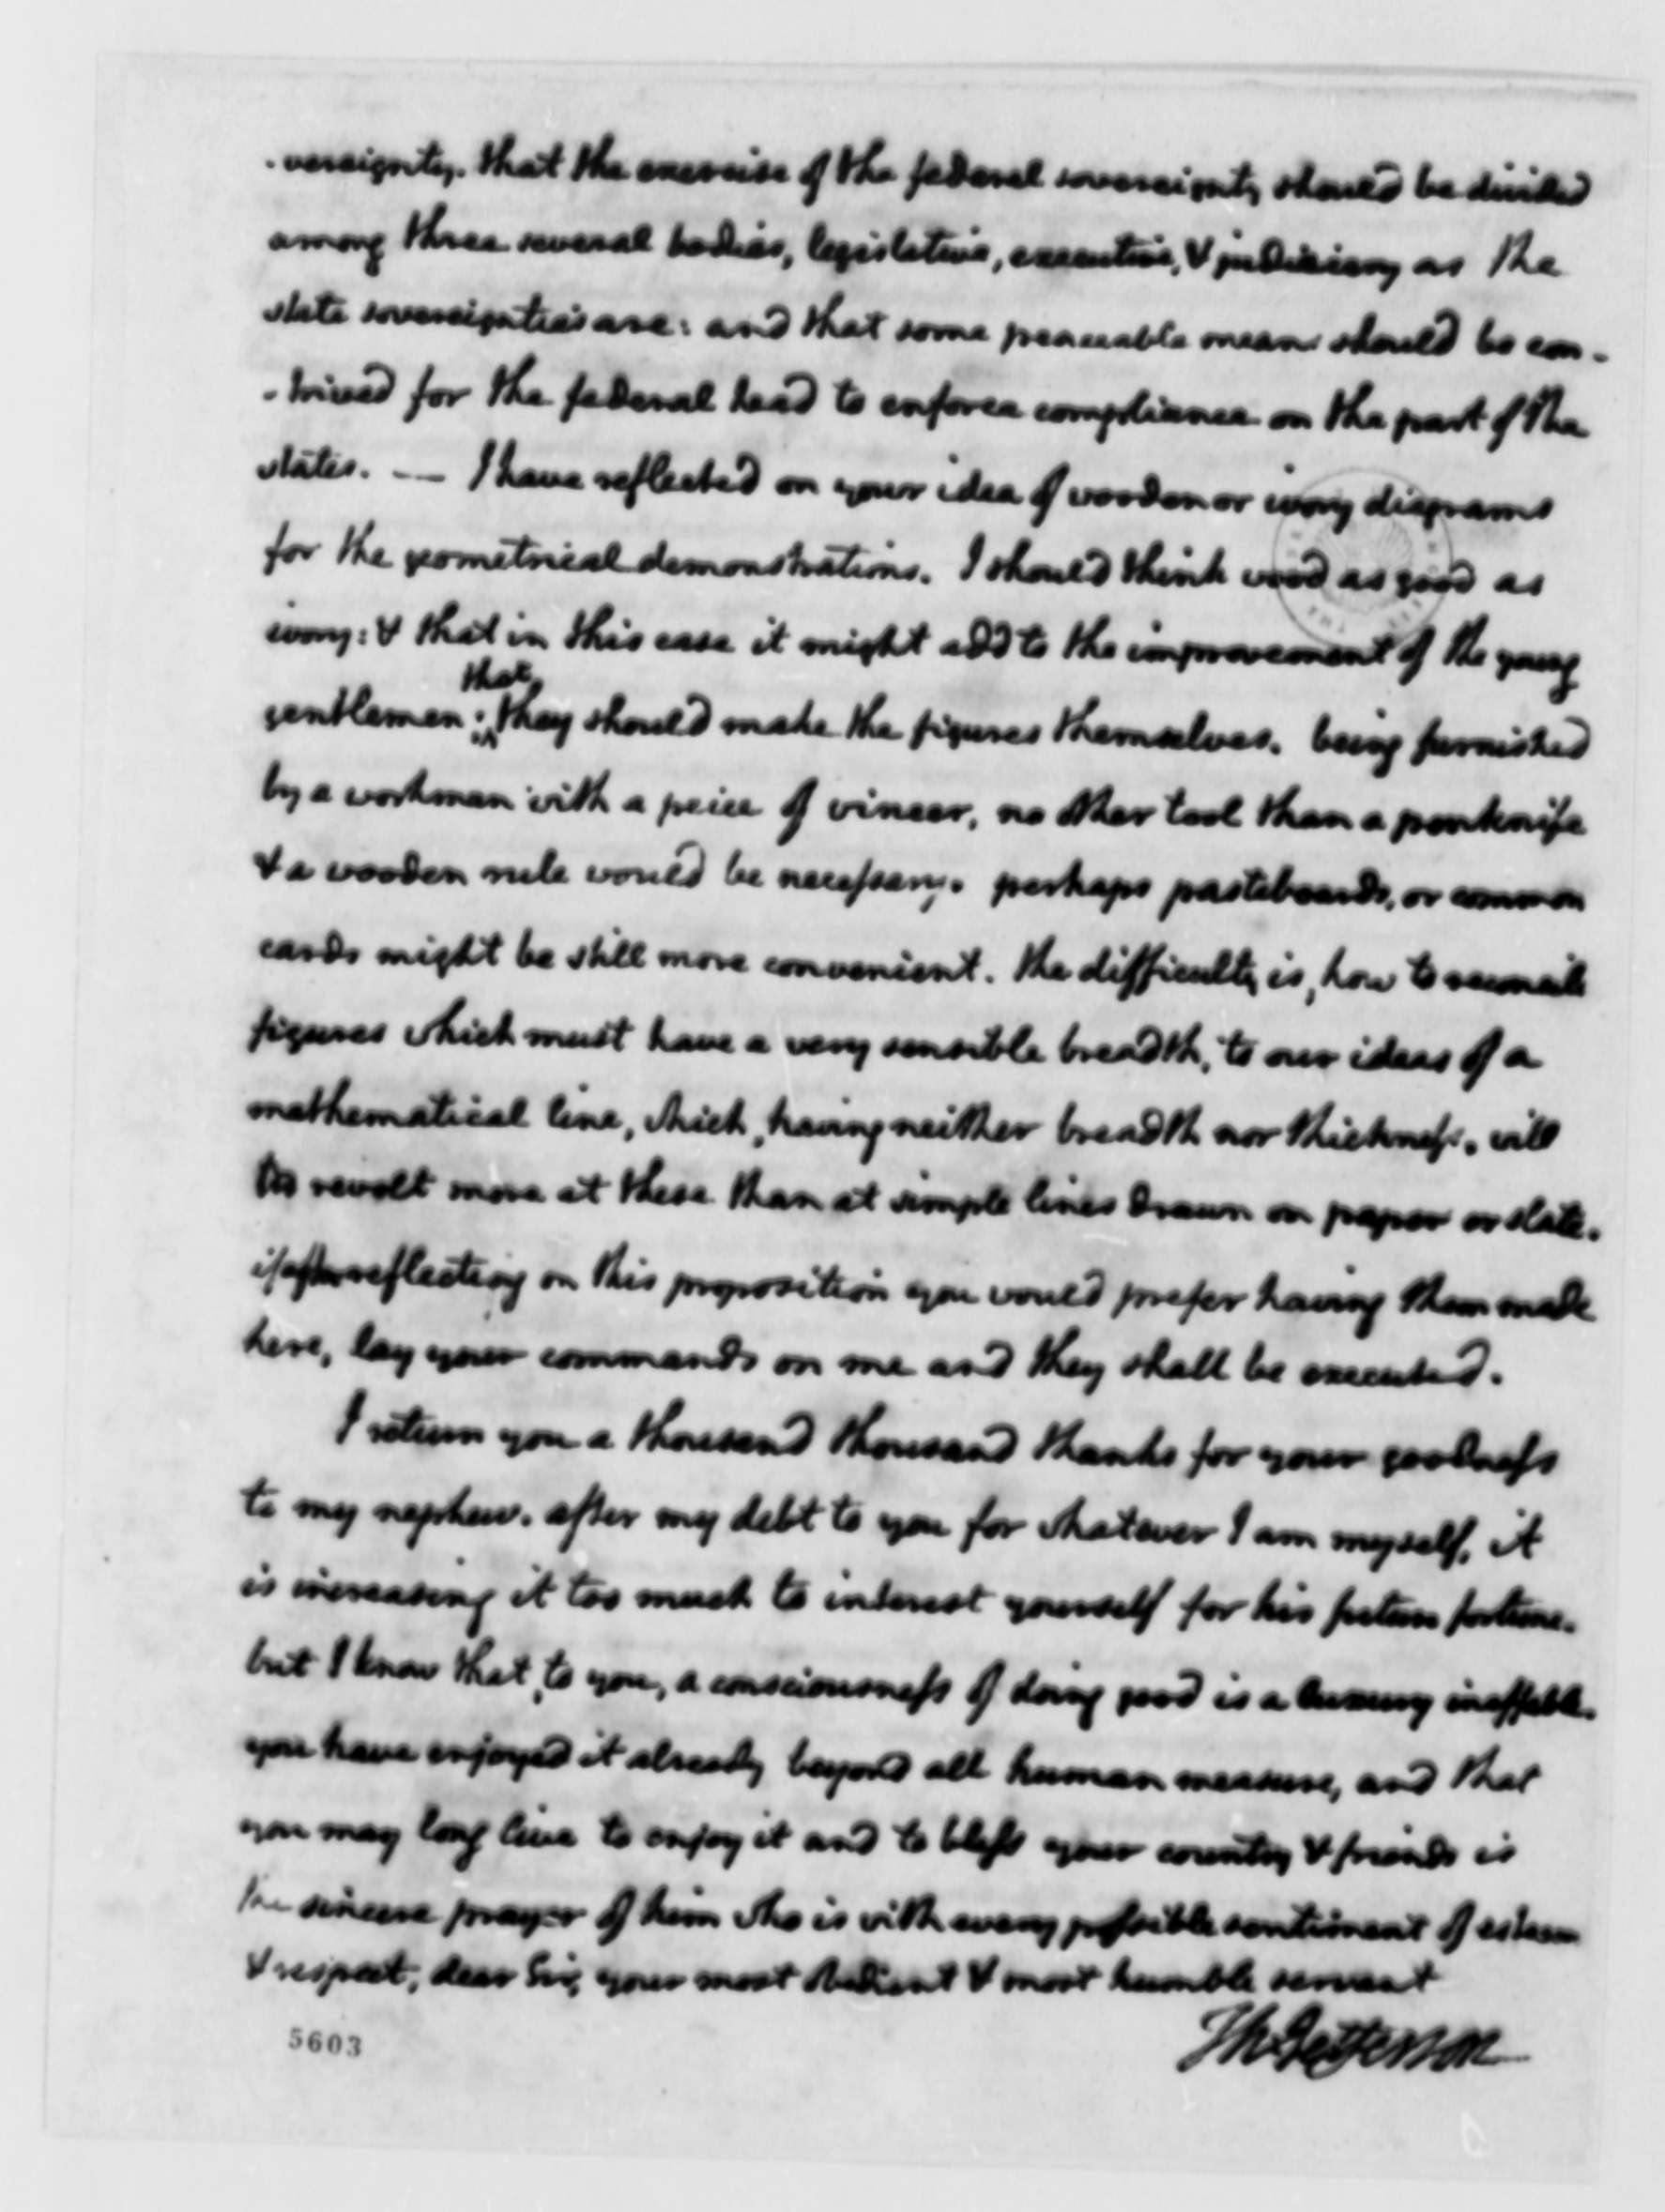 -vereignty. that the exercise of the federal sovereignty should be divided
among three several bodies, legislative, executive, & judiciary as the
state sovereignties are: and that some peaceable means should be con-
-trived for the federal head to enforce compliance on the part of the
states. — I have reflected on your idea of wooden or ivory diagrams
for the geometrical demonstrations. I should think wood as good as
ivory: & that in this case it might add to the improvement of the young
that
gentlemen; they should make the figures themselves. being furnished
by a workman with a peice of vineer, no other tool than a penknife
& a wooden rule would be necessary. perhaps pasteboards, or common
cards might be still more convenient. the difficulty is, how to reconcile
figures which must have a very sensible breadth, to our ideas of a
mathematical line, which, having neither breadth nor thickness, will
revolt more at these than at simple lines drawn on paper or slate.
if after reflecting on this proposition you would prefer having them made
here, lay your commands on me and they shall be executed.
I return you a thousand thousand thanks for your goodness
to my nephew. after my debt to you for whatever I am myself, it
is increasing it too much to interest yourself for his future fortune.
but I know that, to you, a consciousness of doing good is a luxury ineffable.
you have enjoyed it already beyond all human measure, and that
you may long live to enjoy it and to bless your country & friends is
the sincere prayer of him who is with every possible sentiment of esteem
& respect, dear Sir, your most obedient & most humble servant
Th: Jefferson
5603